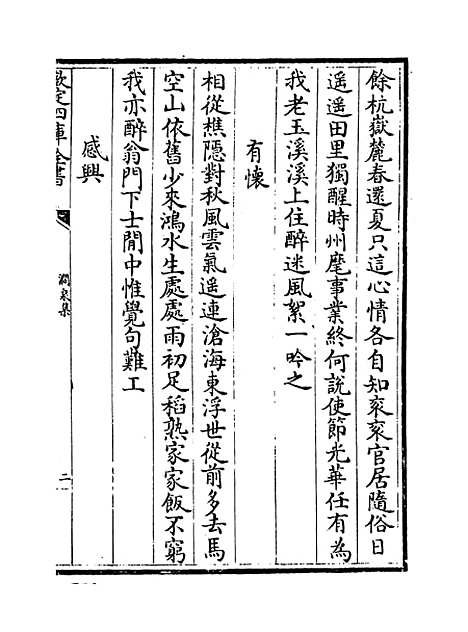 餘杭嶽麓春還夏只這心情各自知衮衮官居隨俗日
遥遥田里獨醒時州麾事業終何說使節光華任有為
我老玉溪溪上住醉迷風絮一吟之
有懐
相從樵隱對秋風雲氣遥連滄海東浮世從前多去馬
空山依舊少來鴻水生處處雨初足稻熟家家飯不窮
我亦醉翁門下士閒中惟覺句難工
感興
欽定四庫全書
澗泉集
二